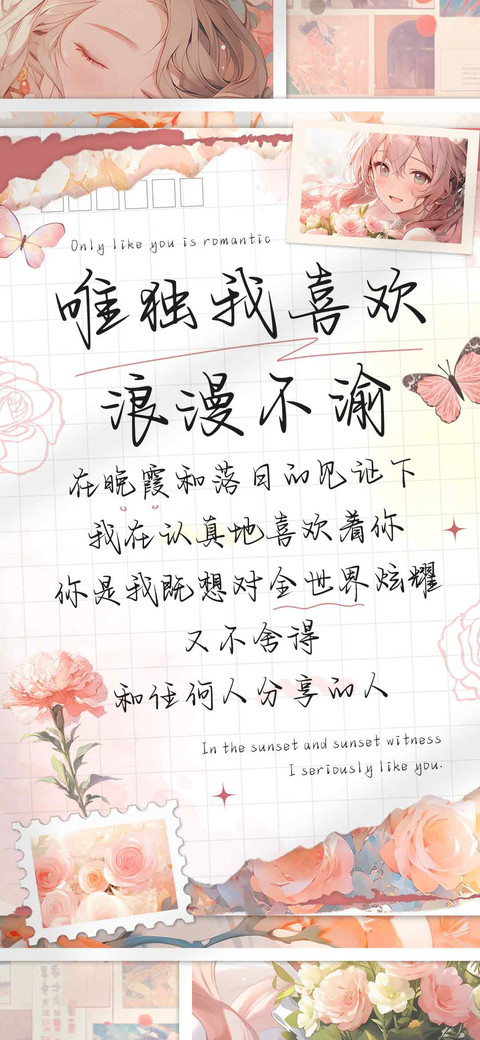 Only like you is romantic
唯独我喜欢
浪漫不渝
在晚霞和落日的见证下
我在认真地喜欢着你
你是我既想对全世界炫耀
又不舍得
和任何人分享的人
In the sunset and sunset witness
I seriously like you.